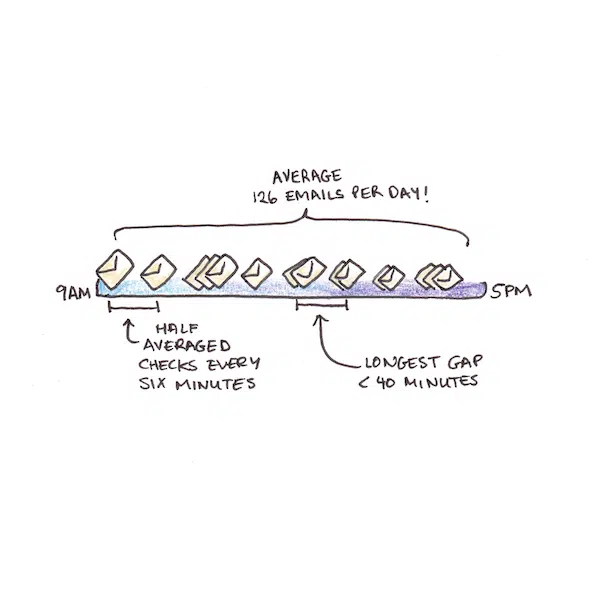 AVERAGE
126 EMAILS PER DAY!
9AM
5PM
HALF
AVERAGED
CHECKS EVERY
SIX MINUTES
LONGEST GAP
< 40 MINUTES